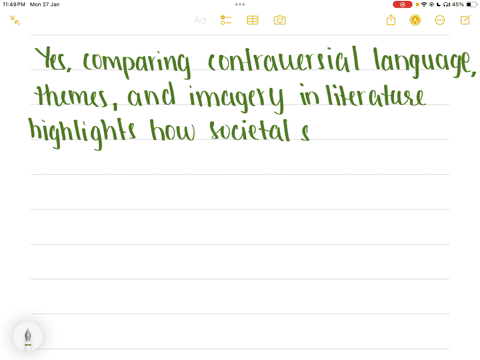 11:49PM Mon 27 Jan
45%
Aa
Yes, comparing contraversial language,
themes, and imagery in literature
highlights how societal s